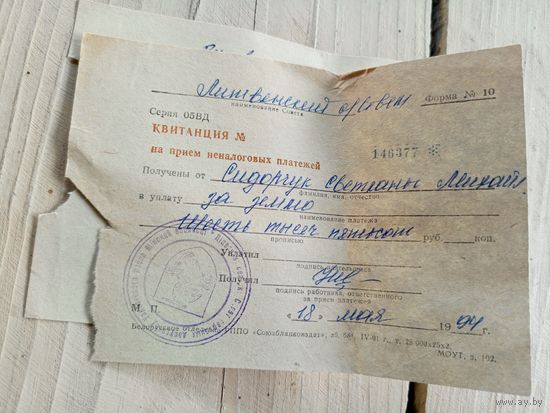 Литвенский с/Совет Форма № 10
наименование Совета
Серия 05ВД
КВИТАНЦИЯ №
на прием неналоговых платежей 146377 ✻
Получены от Сидорчук Светланы Михайл
фамилия, имя, отчество
в уплату за землю
наименование платежа
Шесть тысяч пятьсот руб. коп.
прописью
Уплатил
подпись плательщика
Получил
подпись работника, ответственного
за прием платежей
М. П. «18» мая 1994 г.
Белорусское отделение УППО «Союзбланкоиздат», з. 688, IV-91 г., т. 25 000х25х2.
МОУТ, з, 102.
www.ay.by